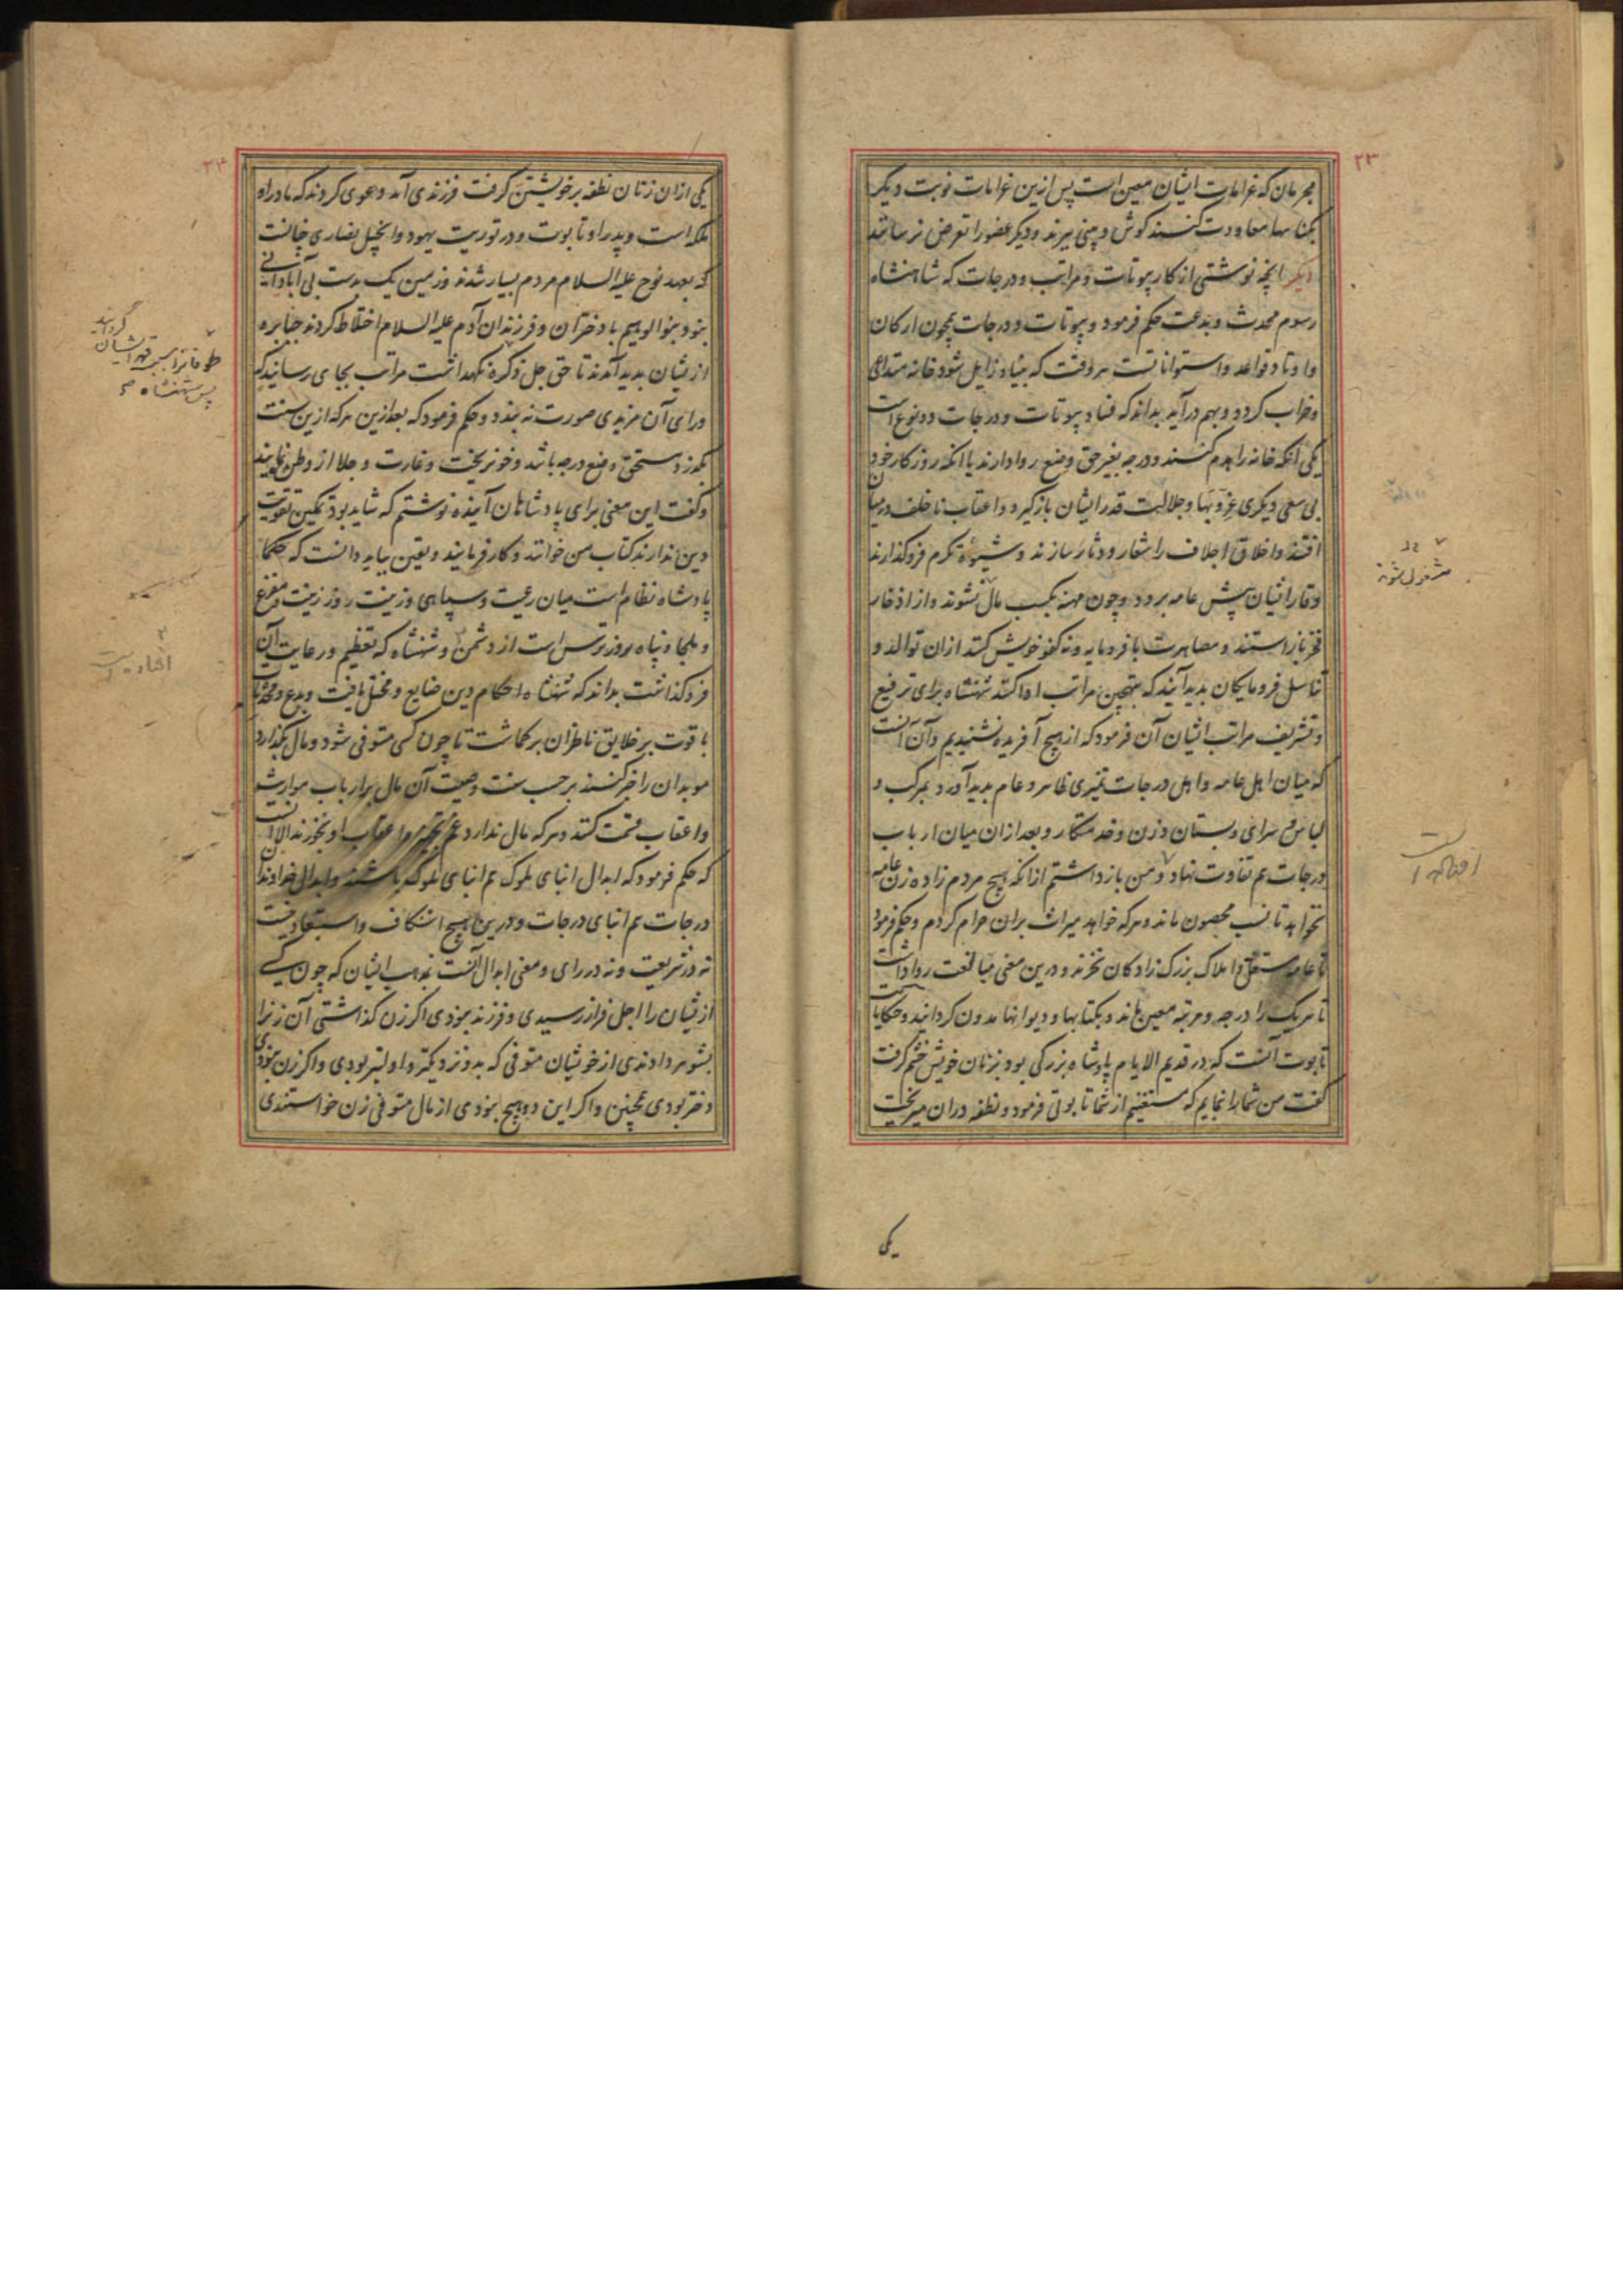 ۲۳
مجرمان که غرامات ایشان معین است پس ازین غرامات نوبت دیکر
بکناهها معاودت کنند کوش و بینی ببرند و دیکر عضو را تعرض نرسانند
دیکر انچه نوشتی از کار بیوتات و مراتب و درجات که شاهنشاه
رسوم محدث و بدعت حکم فرمود و بیوتات و درجات همچون ارکان
و اوتاد و قواعد و اسطوانات است هر وقت که بنیاد زایل شود خانه متداعی
و خراب کردد و بهم درآید بداند که فساد بیوتات و درجات دو نوع است
یکی آنکه خانه را هدم کنند و درجه بغیر حق وضع روا دارند یا انکه روزکار خود
بی سعی دیکری عز و بها و جلالت قدر ایشان بازکیرد و اعقاب ناخلف درمیان
افتند و اخلاق اجلاف را شعار و دثار سازند و شیوه تکرم فروکذارند
و وقار ایشان پیش عامه برود و چون مهنه بکسب مال شوند و از ادخار
فخر بازاستند و مصاهرت با فرومایه و نه کفو خویش کنند ازان توالد و
تناسل فرومایکان بدید آیند که بتهجین مراتب ادا کند شهنشاه برای ترفیع
و تشریف مراتب ایشان آن فرمود که از هیچ آفریده نشنیدیم و آن آنست
که میان اهل عامه و اهل درجات تمیزی ظاهر و عام بدید آورد بمرکب و
لباس و سرای و بستان و زن و خدمتکار و بعد ازان میان ارباب
درجات هم تفاوت نهاد و من بازداشتم ازانکه هیچ مردم زاده زن عامه
نخواهد تا نسب محصون ماند و هرکه خواهد میراث بران حرام کردم و حکم فرمود
تا عامه مستغل و املاک بزرک زادکان نخرند و درین معنی مبالغت روا داشت
تا هریک را درجه و مرتبه معین ماند و بکتابها و دیوانها مدون کردانید و حکایات
تابوت آنست که در قدیم الایام پادشاه بزرکی بود بر زنان خویش خشم کرفت
کفت من شما را نمایم که مستغنیم از شما تابوتی فرمود و نطفه دران میریخت
یکی
مشغول شوند
۲۴
یکی ازان زنان نطفه بر خویشتن کرفت فرزندی آمد دعوی کردند که مادر او
ملکه است و پدر او تابوت و در توریت یهود و انجیل نصاری چنانست
که بعهد نوح علیه السلام مردم بسیار شدند و زمین یک بدست بی آبادانی
نبود بنوالوهیم با دختران و فرزندان آدم علیه السلام اختلاط کردند جبابره
ازیشان بدید آمدند تا حق جل ذکره نکهداشت مراتب بجای رسانید که
ورای آن مزیدی صورت نبندد و حکم فرمود که بعد ازین هرکه ازین سنت
بکذرد مستحق وضع درجه باشد و خونریخت و غارت و جلا از وطن نمایند
و کفت این معنی برای پادشاهان آینده نوشتم که شاید بود تمکین تقویت
دین ندارند کتاب من خوانند و کار فرمایند و یقین بباید دانست که حکما
پادشاه نظام است میان رعیت و سپاهی و زینت روز زینت و مفزع
و ملجا و پناه بروز ترس است از دشمن و شهنشاه که تعظیم و رعایت آن
فروکذاشت بداند که شهنشاه احکام دین ضایع و مختل یافت و بدع و محدثات
با قوت بر خلایق ناظران برکماشت تا چون کسی متوفی شود و مال بکذارد
موبدان را خبر کنند بر حسب سنت و وصیت آن مال برارباب مواریث
و اعقاب قسمت کنند و هرکه مال ندارد غم تجهیز و اعقاب او بخورند الا انست
که حکم فرمود که ابدال ابنای ملوک هم ابنای ملوک باشند و ابدال خداوندان
درجات هم ابنای درجات و درین هیچ استنکاف و استبعاد نیست
نه در شریعت و نه در رای و معنی ابدال آنست بمذهب ایشان که چون یکی
ازیشان را اجل فراز رسیدی و فرزند نبودی اکر زن کذاشتی آن زن را
بشوهر دادندی از خویشان متوفی که بدو نزدیکتر و اولیتر بودی و اکر زن نبودی
دختر بودی همچنین و اکر این دو هیچ نبودی از مال متوفی زن خواستندی